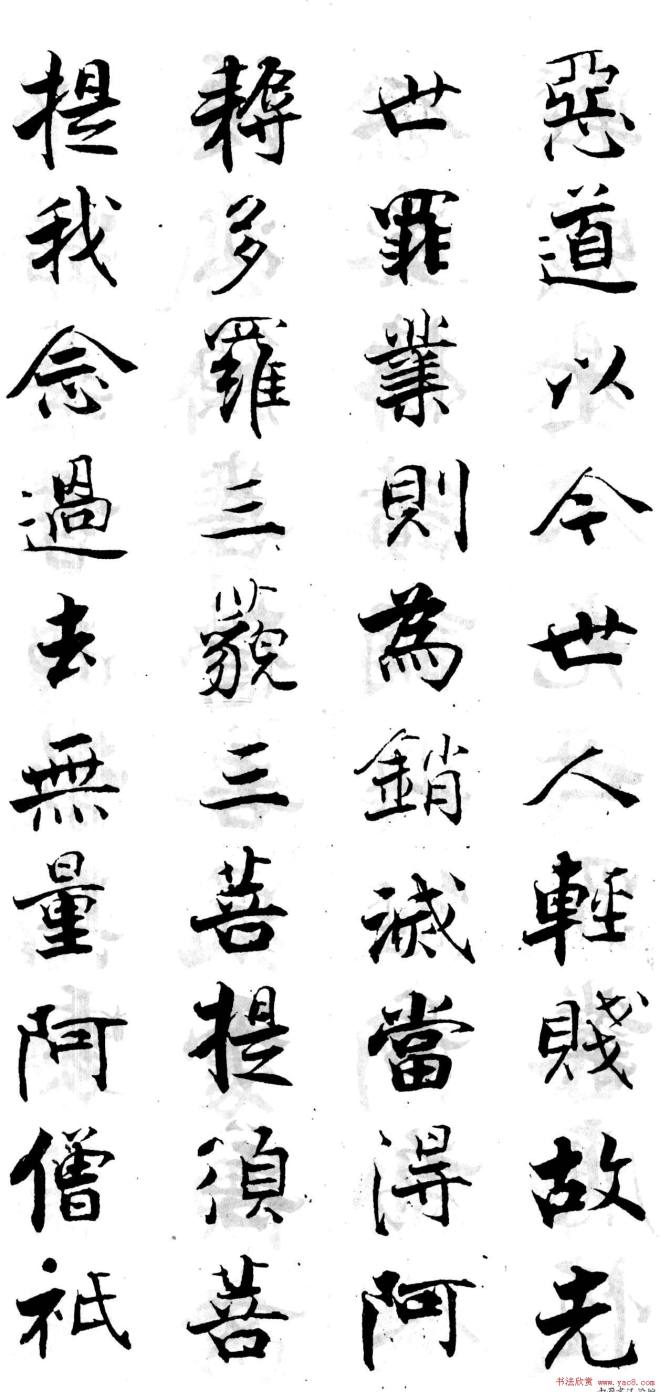 惡道以今世人輕賤故先
世罪業則為銷滅當得阿
耨多羅三藐三菩提須菩
提我念過去無量阿僧祇
书法欣赏 www.yac8.com